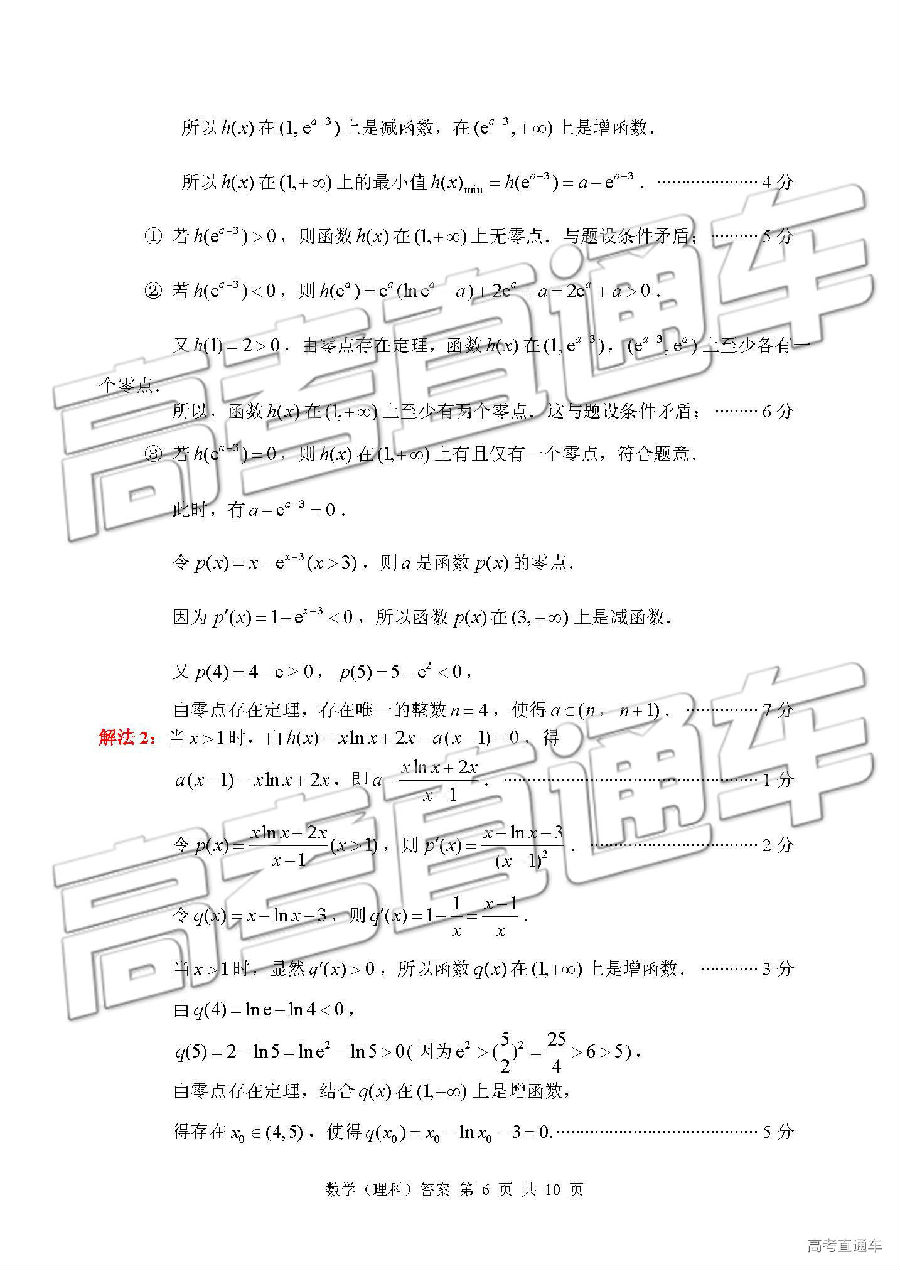 所以h(x)在(1, e^{a-3})上是减函数，在(e^{a-3}, +∞)上是增函数．
所以h(x)在(1,+∞)上的最小值h(x)_{min} = h(e^{a-3}) = a - e^{a-3}．…………………4分
① 若h(e^{a-3})>0，则函数h(x)在(1,+∞)上无零点．与题设条件矛盾；………5分
② 若h(e^{a-3})<0，则h(e^a)=e^a(ln e^a-a)+2e^a+a=2e^a+a>0．
又h(1)=2>0．由零点存在定理，函数h(x)在(1,e^{a-3})，(e^{a-3},e^a)上至少各有一
个零点．
所以，函数h(x)在(1,+∞)上至少有两个零点，这与题设条件矛盾；………6分
③ 若h(e^{a-3})=0，则h(x)在(1,+∞)上有且仅有一个零点，符合题意．
此时，有a-e^{a-3}=0．
令p(x)=x-e^{x-3}(x>3)，则a是函数p(x)的零点．
因为p′(x)=1-e^{x-3}<0，所以函数p(x)在(3,+∞)上是减函数．
又p(4)=4-e>0，p(5)=5-e^2<0，
由零点存在定理，存在唯一的整数n=4，使得a∈(n，n+1)．……………7分
解法2：当x>1时，由h(x)=xln x+2x-a(x-1)=0，得
a(x-1)=xln x+2x，即a=\frac{xln x+2x}{x-1}．……………………………………………1分
令p(x)=\frac{xln x+2x}{x-1}(x>1)，则p′(x)=\frac{x-ln x-3}{(x-1)^2}．……………………………2分
令q(x)=x-ln x-3，则q′(x)=1-\frac{1}{x}=\frac{x-1}{x}．
当x>1时，显然q′(x)>0，所以函数q(x)在(1,+∞)上是增函数．…………3分
由q(4)=ln e-ln 4<0，
q(5)=2-ln 5=ln e^2-ln 5>0(因为e^2>(\frac{5}{2})^2=\frac{25}{4}>6>5)，
由零点存在定理，结合q(x)在(1,+∞)上是增函数，
得存在x_0∈(4,5)，使得q(x_0)=x_0-ln x_0-3=0.……………………………………5分
数学（理科）答案 第 6 页 共 10 页
高考直通车
高考直通车
高考直通车